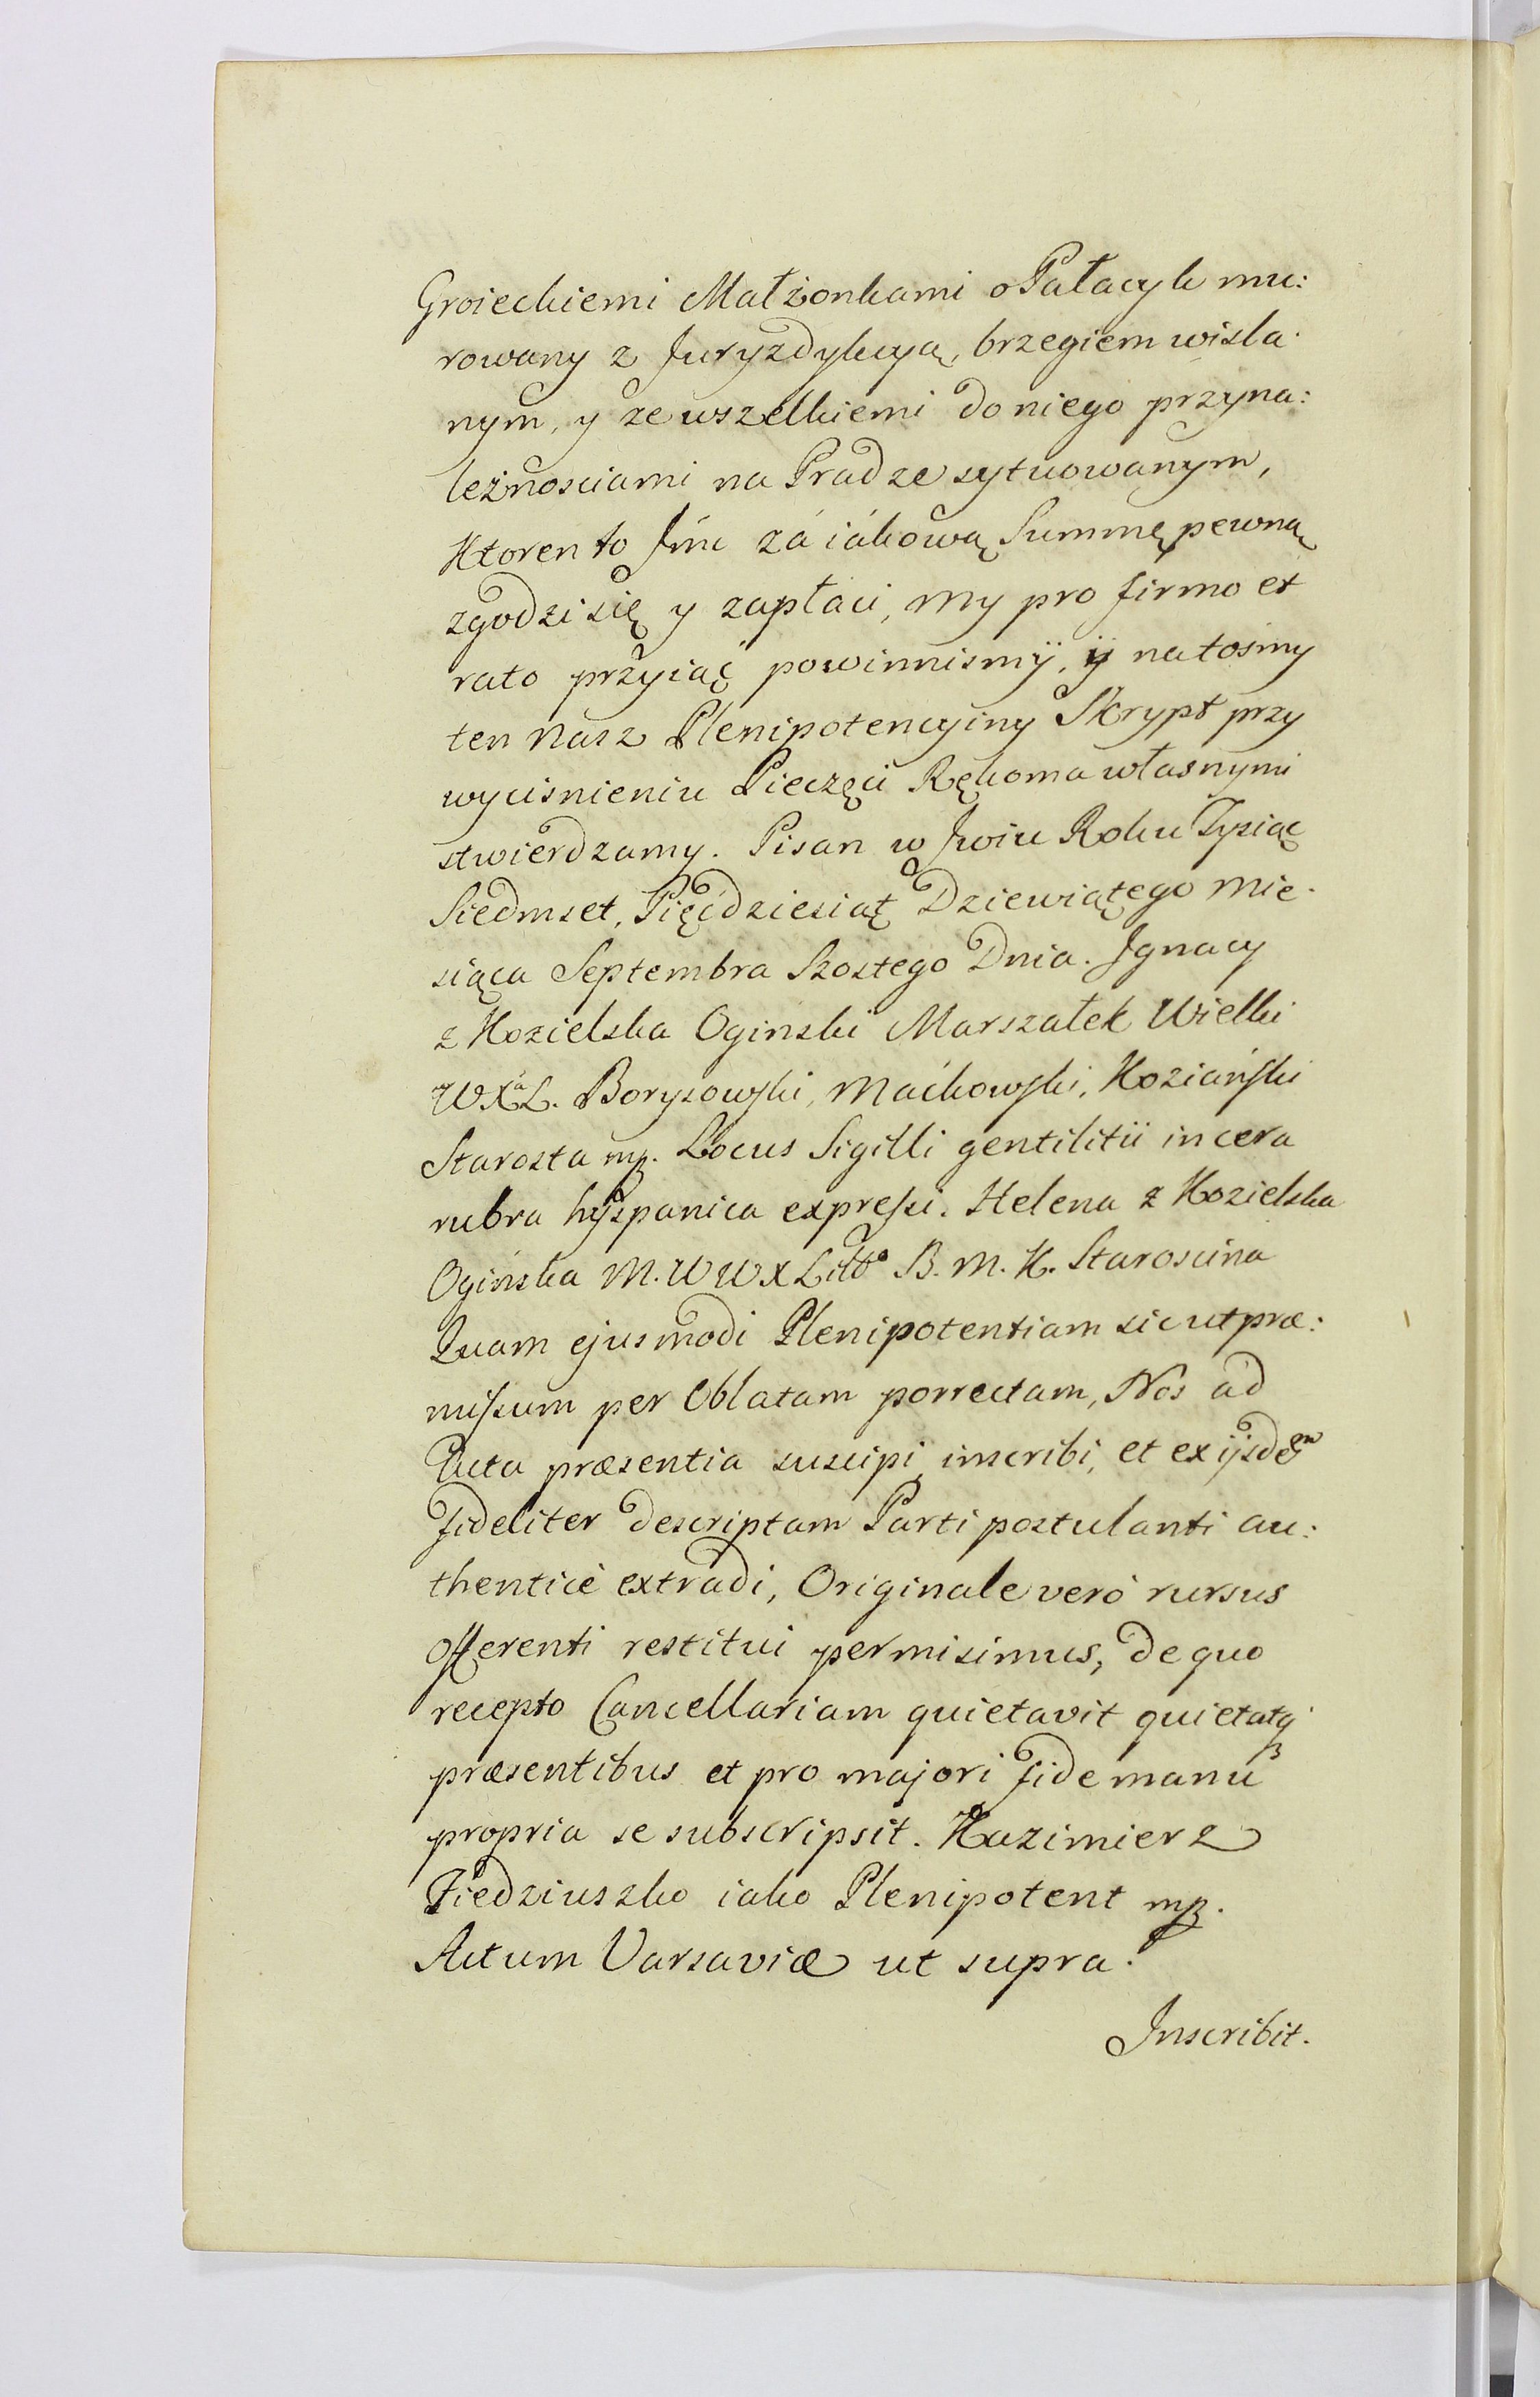 Groieckiemi Małżonkami o Pałacyk mu:
rowany z Juryzdykcyą, brzegiem wisla-
nym, y ze wszelkiemi do niego przyna:
leżnosciami na Pradze sytuowanym,
Ktoren to Jmć zá iákową Summę pewną
zgodzi się y zapłaci, my pro firmo et
rato przyiąć powinnismÿ, ÿ na tośmy
ten Nasz Plenipotencyiny Skrypt przy
wyciśnieniu Pieczęci Rękoma własnymi
stwierdzamy. Pisan w Jwiu Roku Tysiąc
Siedmset, Pięćdziesiąt Dziewiątego Mie-
siąca Septembra Szostego Dnia. Jgnacy
z Kozielska Oginski Marszałek Wielki
WXaL. Borysowski, Maćkowski, Koziański
Starosta mp. Locus Sigilli gentilitii in cera
rubra hÿspanica expressi. Helena z Kozielska
Ogińska M. W W X Litto B. M. K. Staroscina
Quam ejusmodi Plenipotentiam sicut præ:
missum per Oblatam porrectam, Nos ad
Acta præsentia suscipi, inscribi, et ex ijsdem
fideliter descriptam Parti postulanti au:
thenticè extradi, Originale verò rursus
offerenti restitui permisimus, de quo
recepto Cancellariam quietavit quietatq3
præsentibus et pro majori fide manu
propria se subscripsit. Kazimierz
Fiedziuszko iako Plenipotent mp.
Actum Varsaviæ ut supra.
Inscribit.